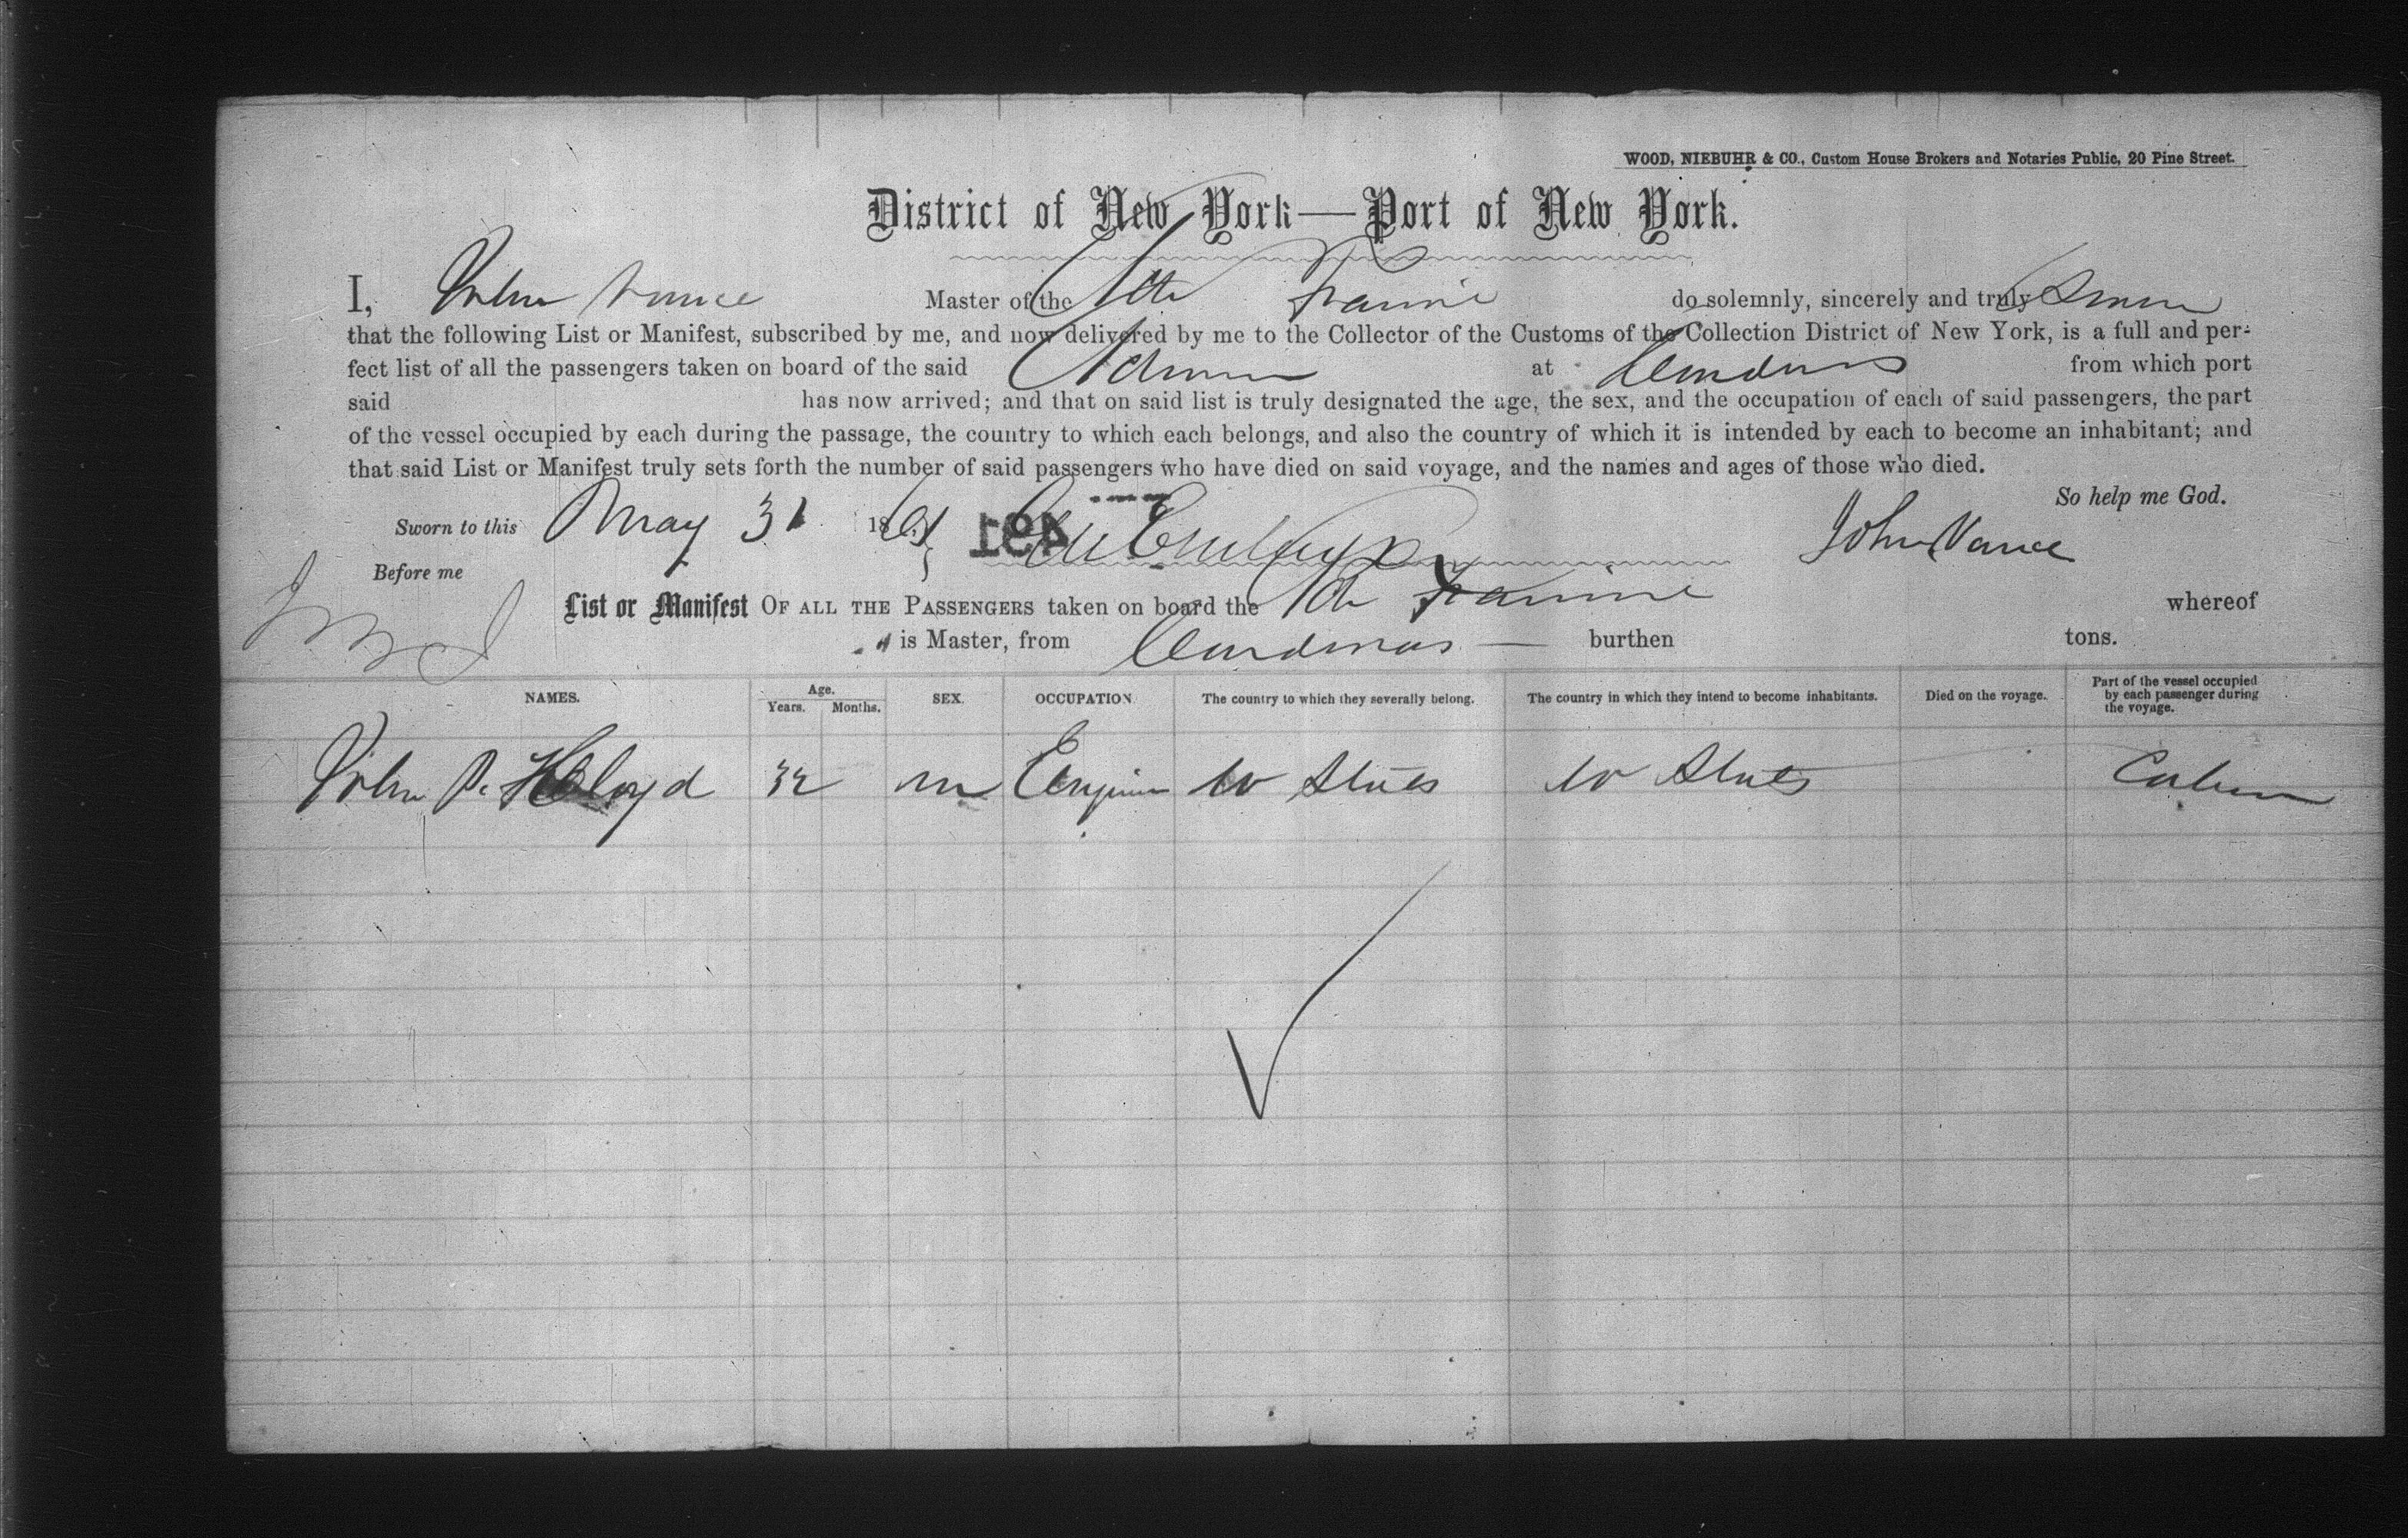 WOOD, NIEBUHR & CO., Custom House Brokers and Notaries Public, 20 Pine Street.
District of New York—Port of New York.
I, John Vance Master of the Fannie do solemnly, sincerely and truly Swear
that the following List or Manifest, subscribed by me, and now delivered by me to the Collector of the Customs of the Collection District of New York, is a full and per-
fect list of all the passengers taken on board of the said Schooner at Cardenas from which port
said has now arrived; and that on said list is truly designated the age, the sex, and the occupation of each of said passengers, the part
of the vessel occupied by each during the passage, the country to which each belongs, and also the country of which it is intended by each to become an inhabitant; and
that said List or Manifest truly sets forth the number of said passengers who have died on said voyage, and the names and ages of those who died.
So help me God.
Sworn to this May 31 18 491 John Vance
Before me
List or Manifest OF ALL THE PASSENGERS taken on board the Fannie whereof
is Master, from Cardenas — burthen tons.
NAMES. Age. Years. Months. SEX. OCCUPATION The country to which they severally belong. The country in which they intend to become inhabitants. Died on the voyage. Part of the vessel occupied by each passenger during the voyage.
John P. Lloyd 32 m U States U States Cabin